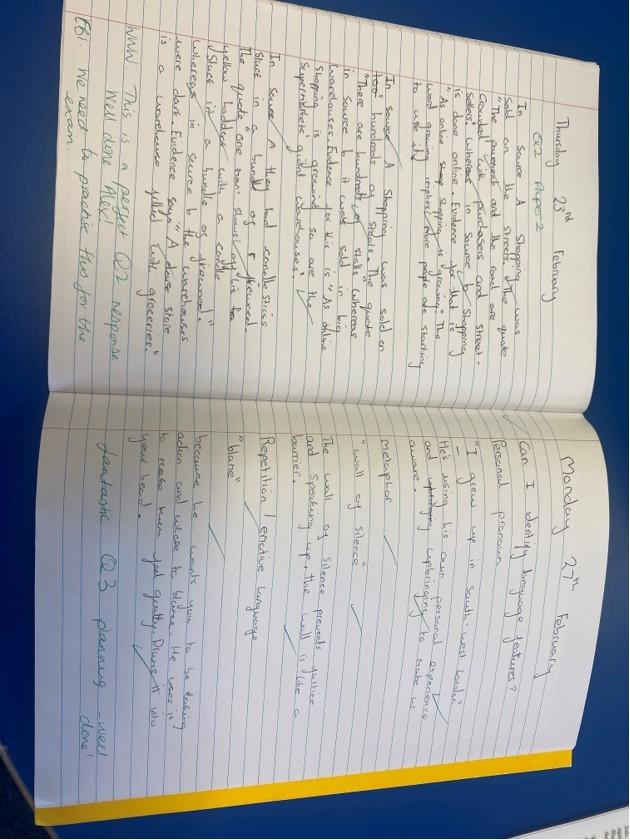 Thursday 23rd February
Q2 Paper 2
In Source A Shopping was
sold on the streets. The quote
"The pavement and the road are
crowded with purchasers and street-
sellers." whereas in Source b Shopping
is done online. Evidence for that is
"As online shopping is growing." The
word growing implies more people are starting
to use it.
In Source A Shopping was sold on
hundreds of stalls. The quote
"There are hundreds of stalls" whereas
in source b it was sold in big
warehouses. Evidence for this is "As online
shopping is growing so are the
Supermarkets' giant warehouses."
In Source A they had candle sticks
stuck in a bundle of firewood.
The quote "one man shows off his
yellow haddock with a candle
stuck in a bundle of firewood."
whereas in source b the warehouses
were dark. Evidence says "A dark store
is a warehouse filled with groceries."
WWW: This is a perfect Q2 response
Well done Alex!
EBI: We need to practise this for the
exam.
Monday 27th February
Can I identify language features?
Personal pronoun
"I grew up in south-west London"
He's using his own personal experience
and upbringing to make us
aware.
metaphor
"wall of silence"
The wall of silence prevents justice
and speaking up, the wall is like a
barrier.
Repetition / emotive language
"blame"
because he wants you to be taking
action and where to blame. He uses it
to make them feel guilty. Drums it into
your head.
fantastic Q3 planning - well
done!